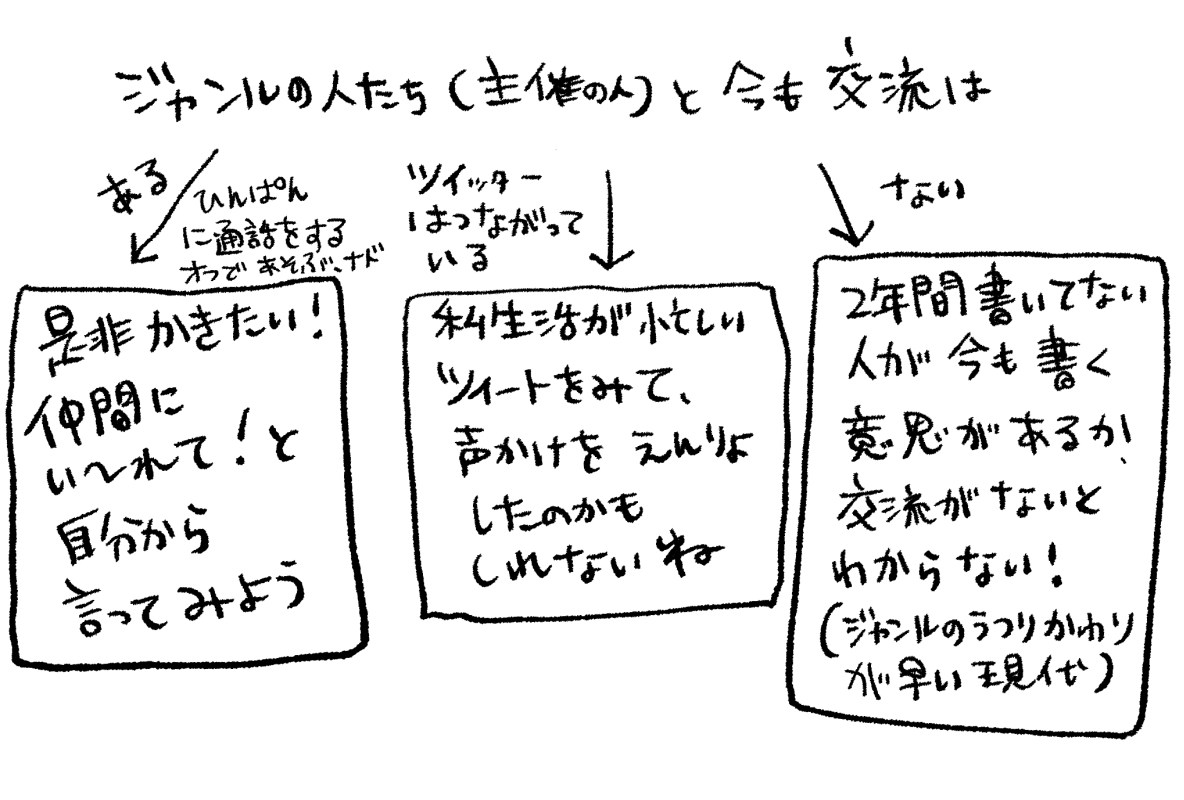 ジャンルの人たち(主催の人)と今も交流は
ある
ひんぱん
に通話をする
オフであそぶ、ナド
ツイッター
はつながって
いる
ない
是非かきたい!
仲間に
いーれて!と
自分から
言ってみよう
私生活が忙しい
ツイートをみて、
声かけをえんりょ
したのかも
しれないね
2年間書いてない
人が今も書く
意思があるか、
交流がないと
わからない!
(ジャンルのうつりかわり
が早い現代)